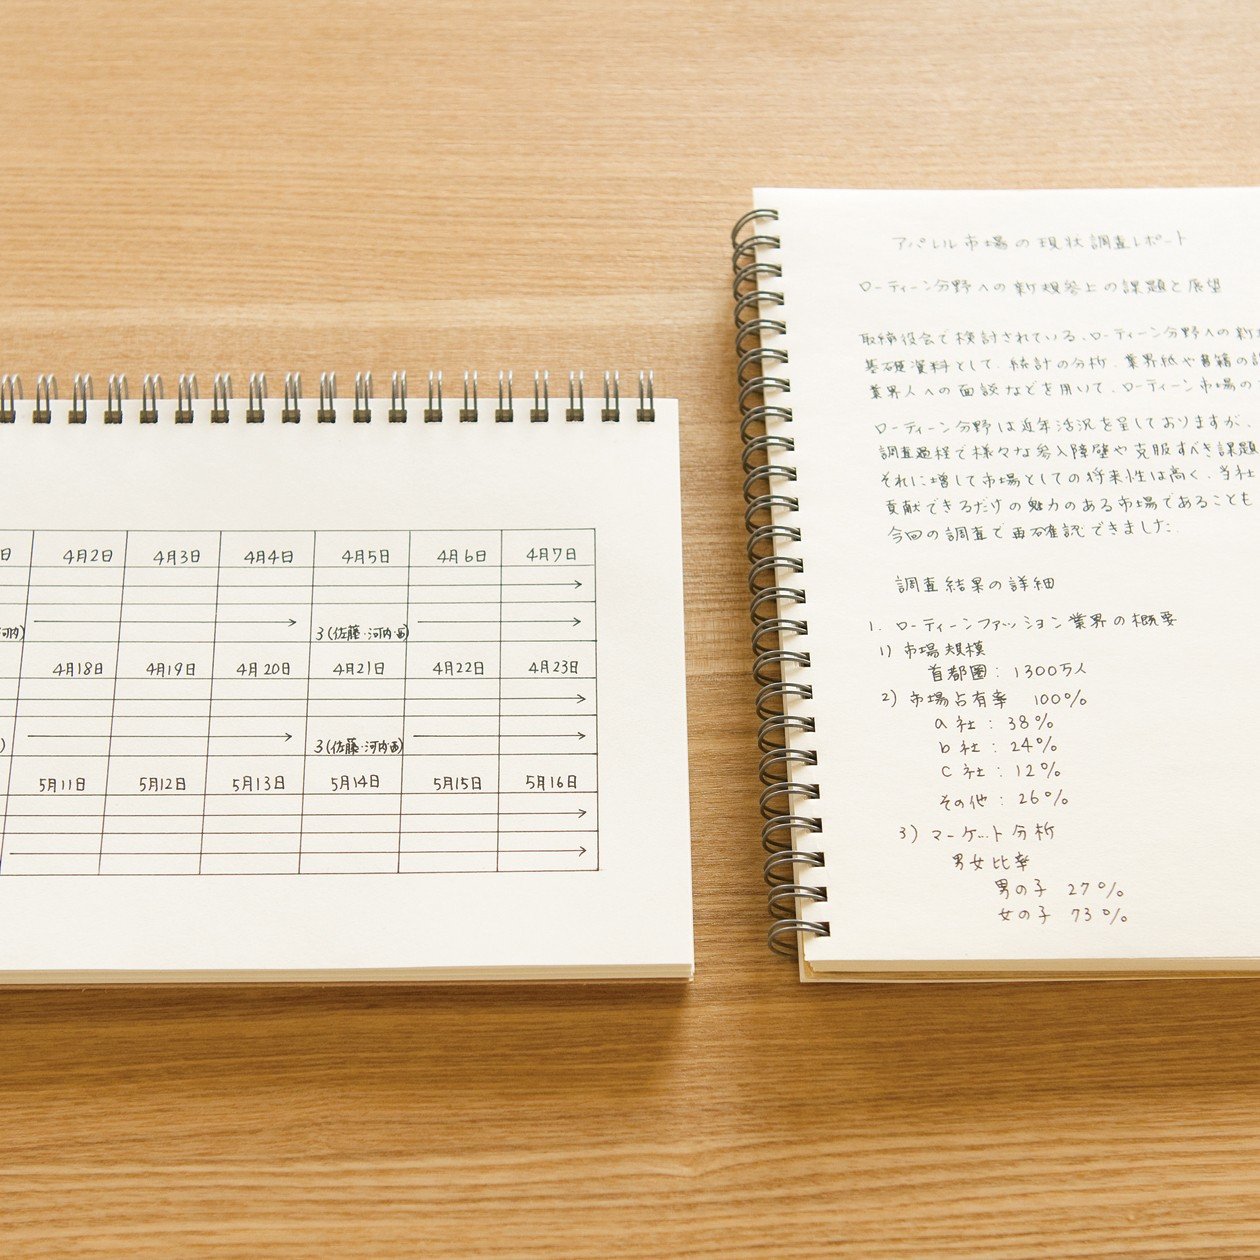 日 4月2日 4月3日 4月4日 4月5日 4月6日 4月7日
3(佐藤・河内・西)
4月18日 4月19日 4月20日 4月21日 4月22日 4月23日
3(佐藤・河内・西)
5月11日 5月12日 5月13日 5月14日 5月15日 5月16日
アパレル市場の現状調査レポート
ローティーン分野への新規参上の課題と展望
取締役会で検討されている、ローティーン分野への新
基礎資料として、統計の分析、業界紙や書籍の
業界人への面談などを用いて、ローティーン市場の
ローティーン分野は近年活況を呈しておりますが、
調査過程で様々な参入障壁や克服すべき課題
それに増して市場としての将来性は高く、当社
貢献できるだけの魅力のある市場であることも
今回の調査で再確認できました。
調査結果の詳細
1. ローティーンファッション業界の概要
1) 市場規模
首都圏: 1300万人
2) 市場占有率 100%
a社: 38%
b社: 24%
c社: 12%
その他: 26%
3) マーケット分析
男女比率
男の子 27%
女の子 73%